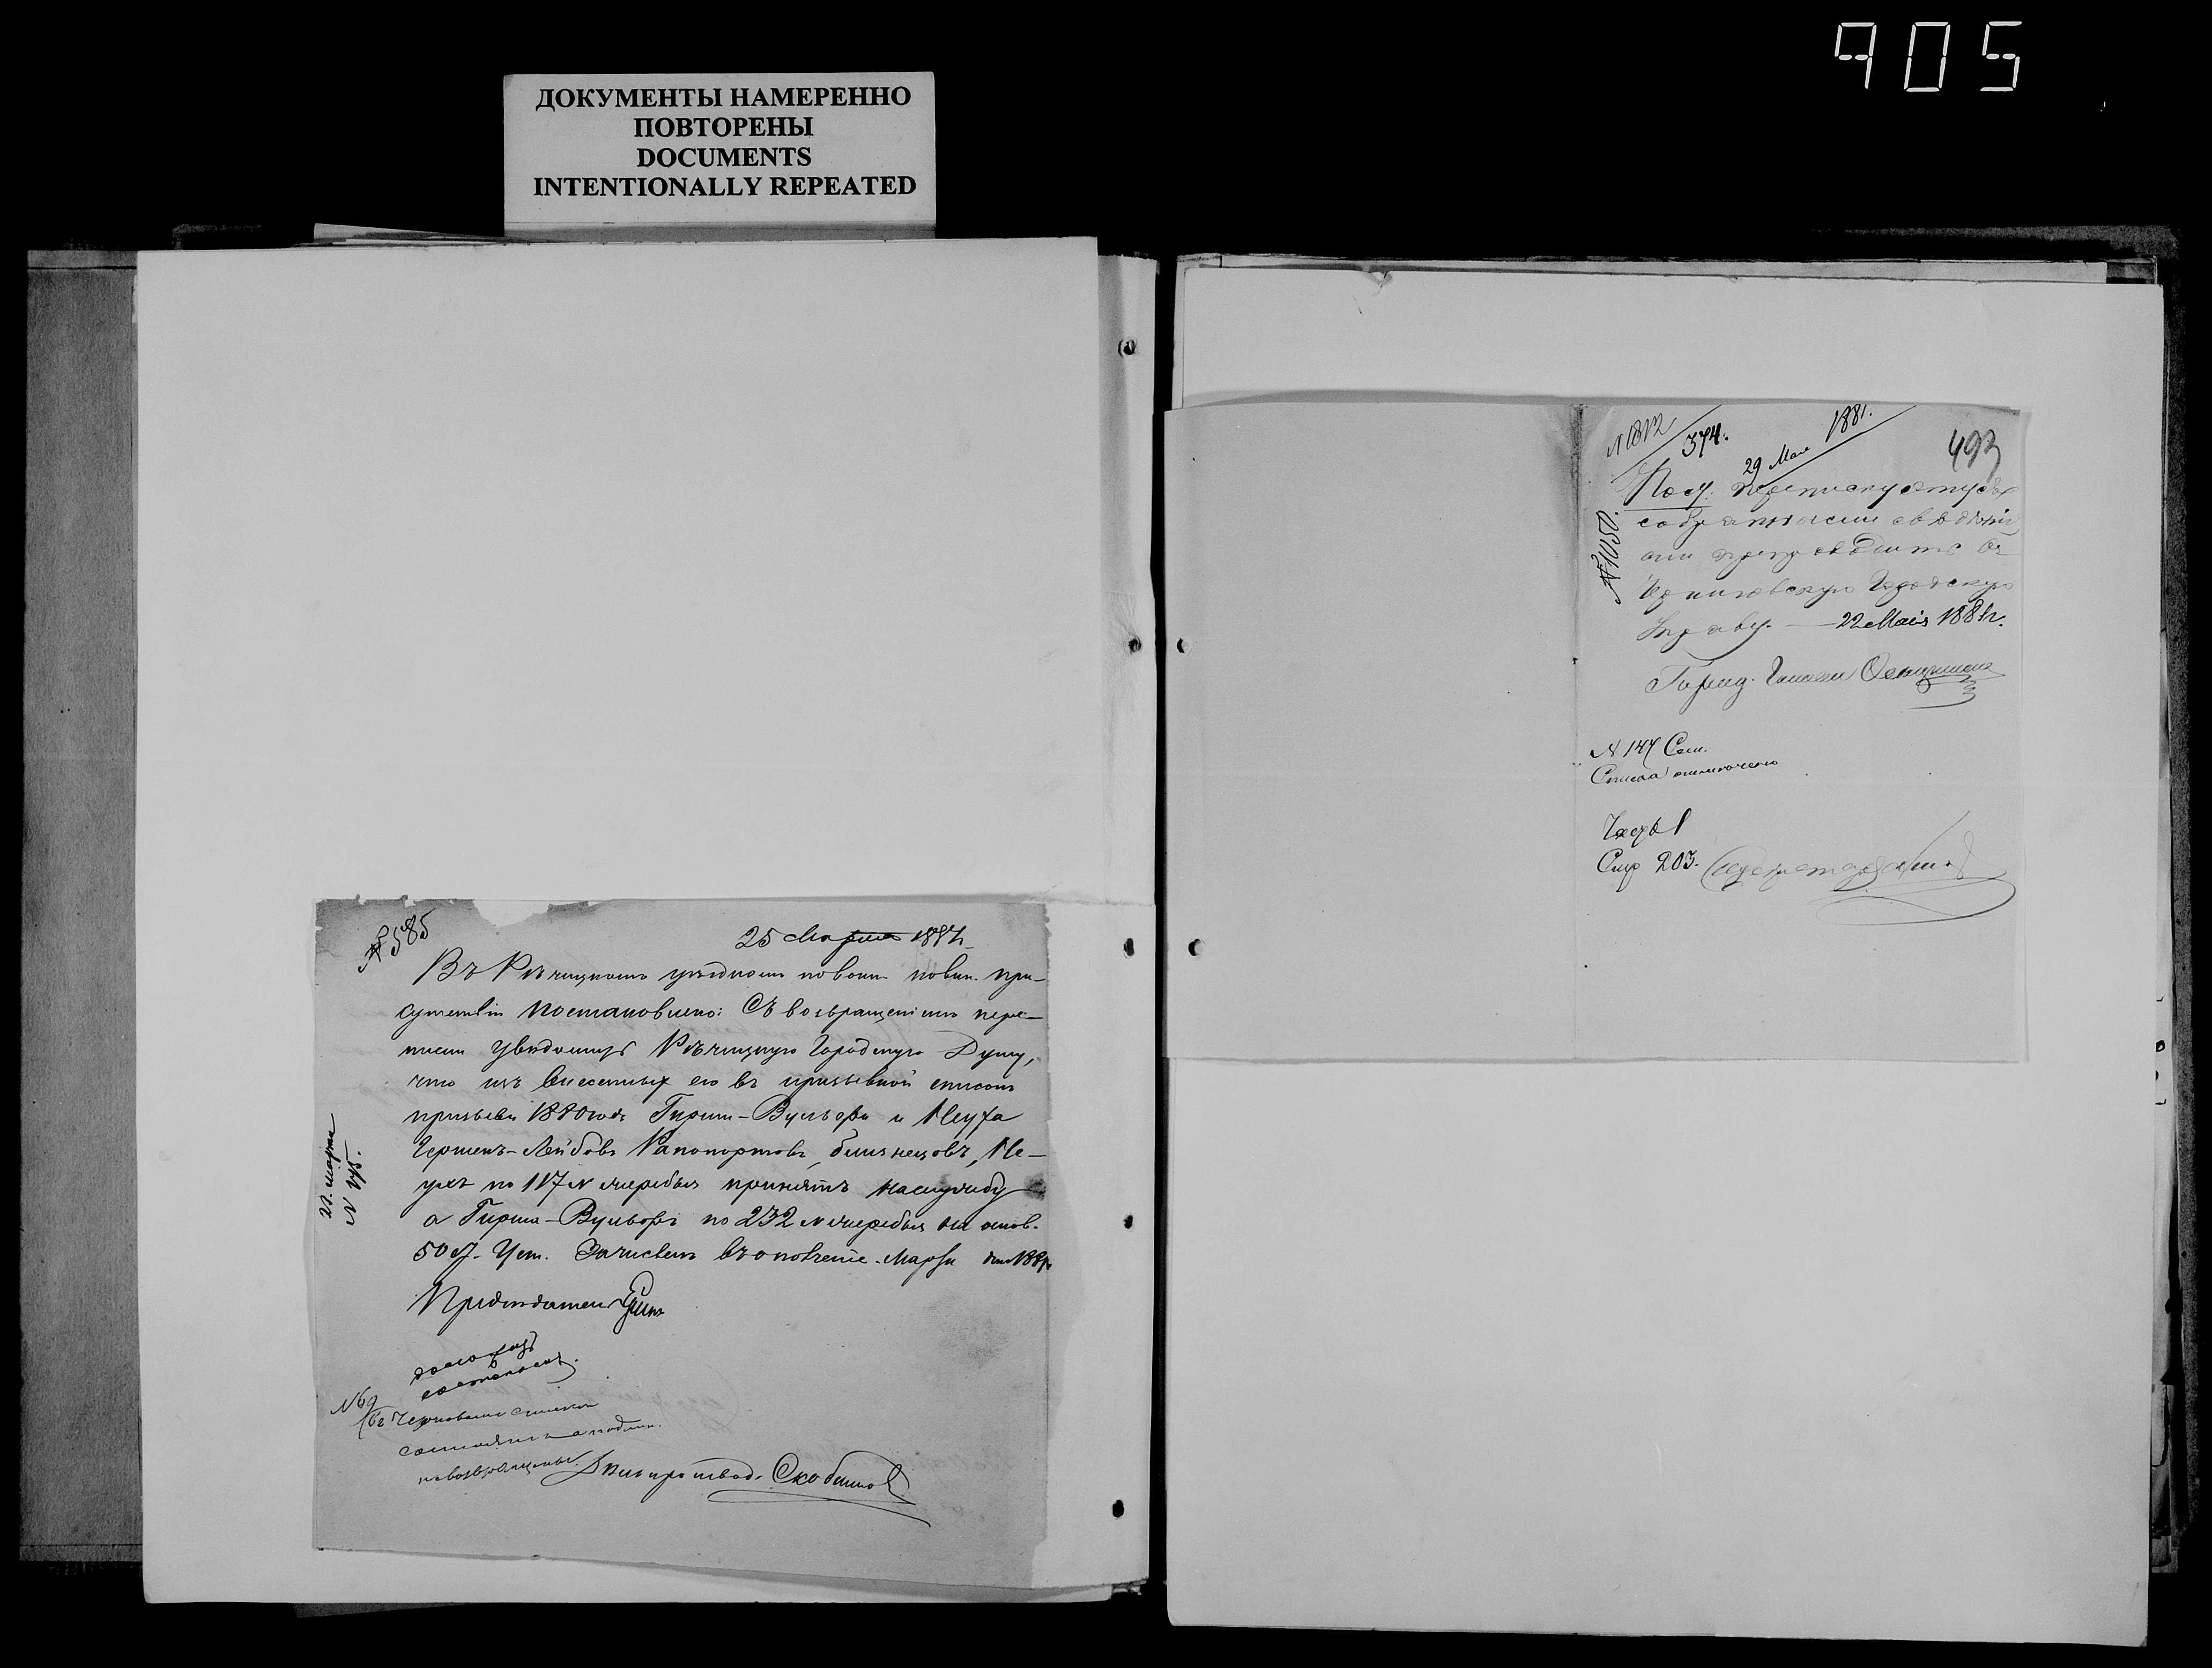 905
ДОКУМЕНТЫ НАМЕРЕННО
ПОВТОРЕНЫ
DOCUMENTS
INTENTIONALLY REPEATED
№ 585
25 Марта
Въ Рѣчицкомъ уѣздномъ по воин. повин. при-
сутствіи постановлено: Съ возвращеніемъ пере-
писки увѣдомить Рѣчицкую Городскую Думу,
что изъ внесенныхъ ею въ призывной списокъ
призыва 1880 года Гирша-Вульфа и Неуха
Гершенъ-Лейбовъ Рапопортовъ, близнецовъ, Не-
ухъ по 117 № жеребья принятъ на службу
а Гирша-Вульфъ по 232 № жеребья на основ.
50 ст. Уст. Зачисленъ въ ополченіе. Марта дня 188
Предсѣдатель
21. марта
№
№ 69
Дѣлопроизвод. Скобликов
№ 1812
374.
29 Мая 1881.
493
№ 1050.
переписку
собранными свѣдѣні
ями препроводить въ
Черниговскую Городскую
Управу. — 22 Мая 1881 г.
Город. Голова
№ 147 Сем.
Списка
Часть 1
Стр 203. Секретарь